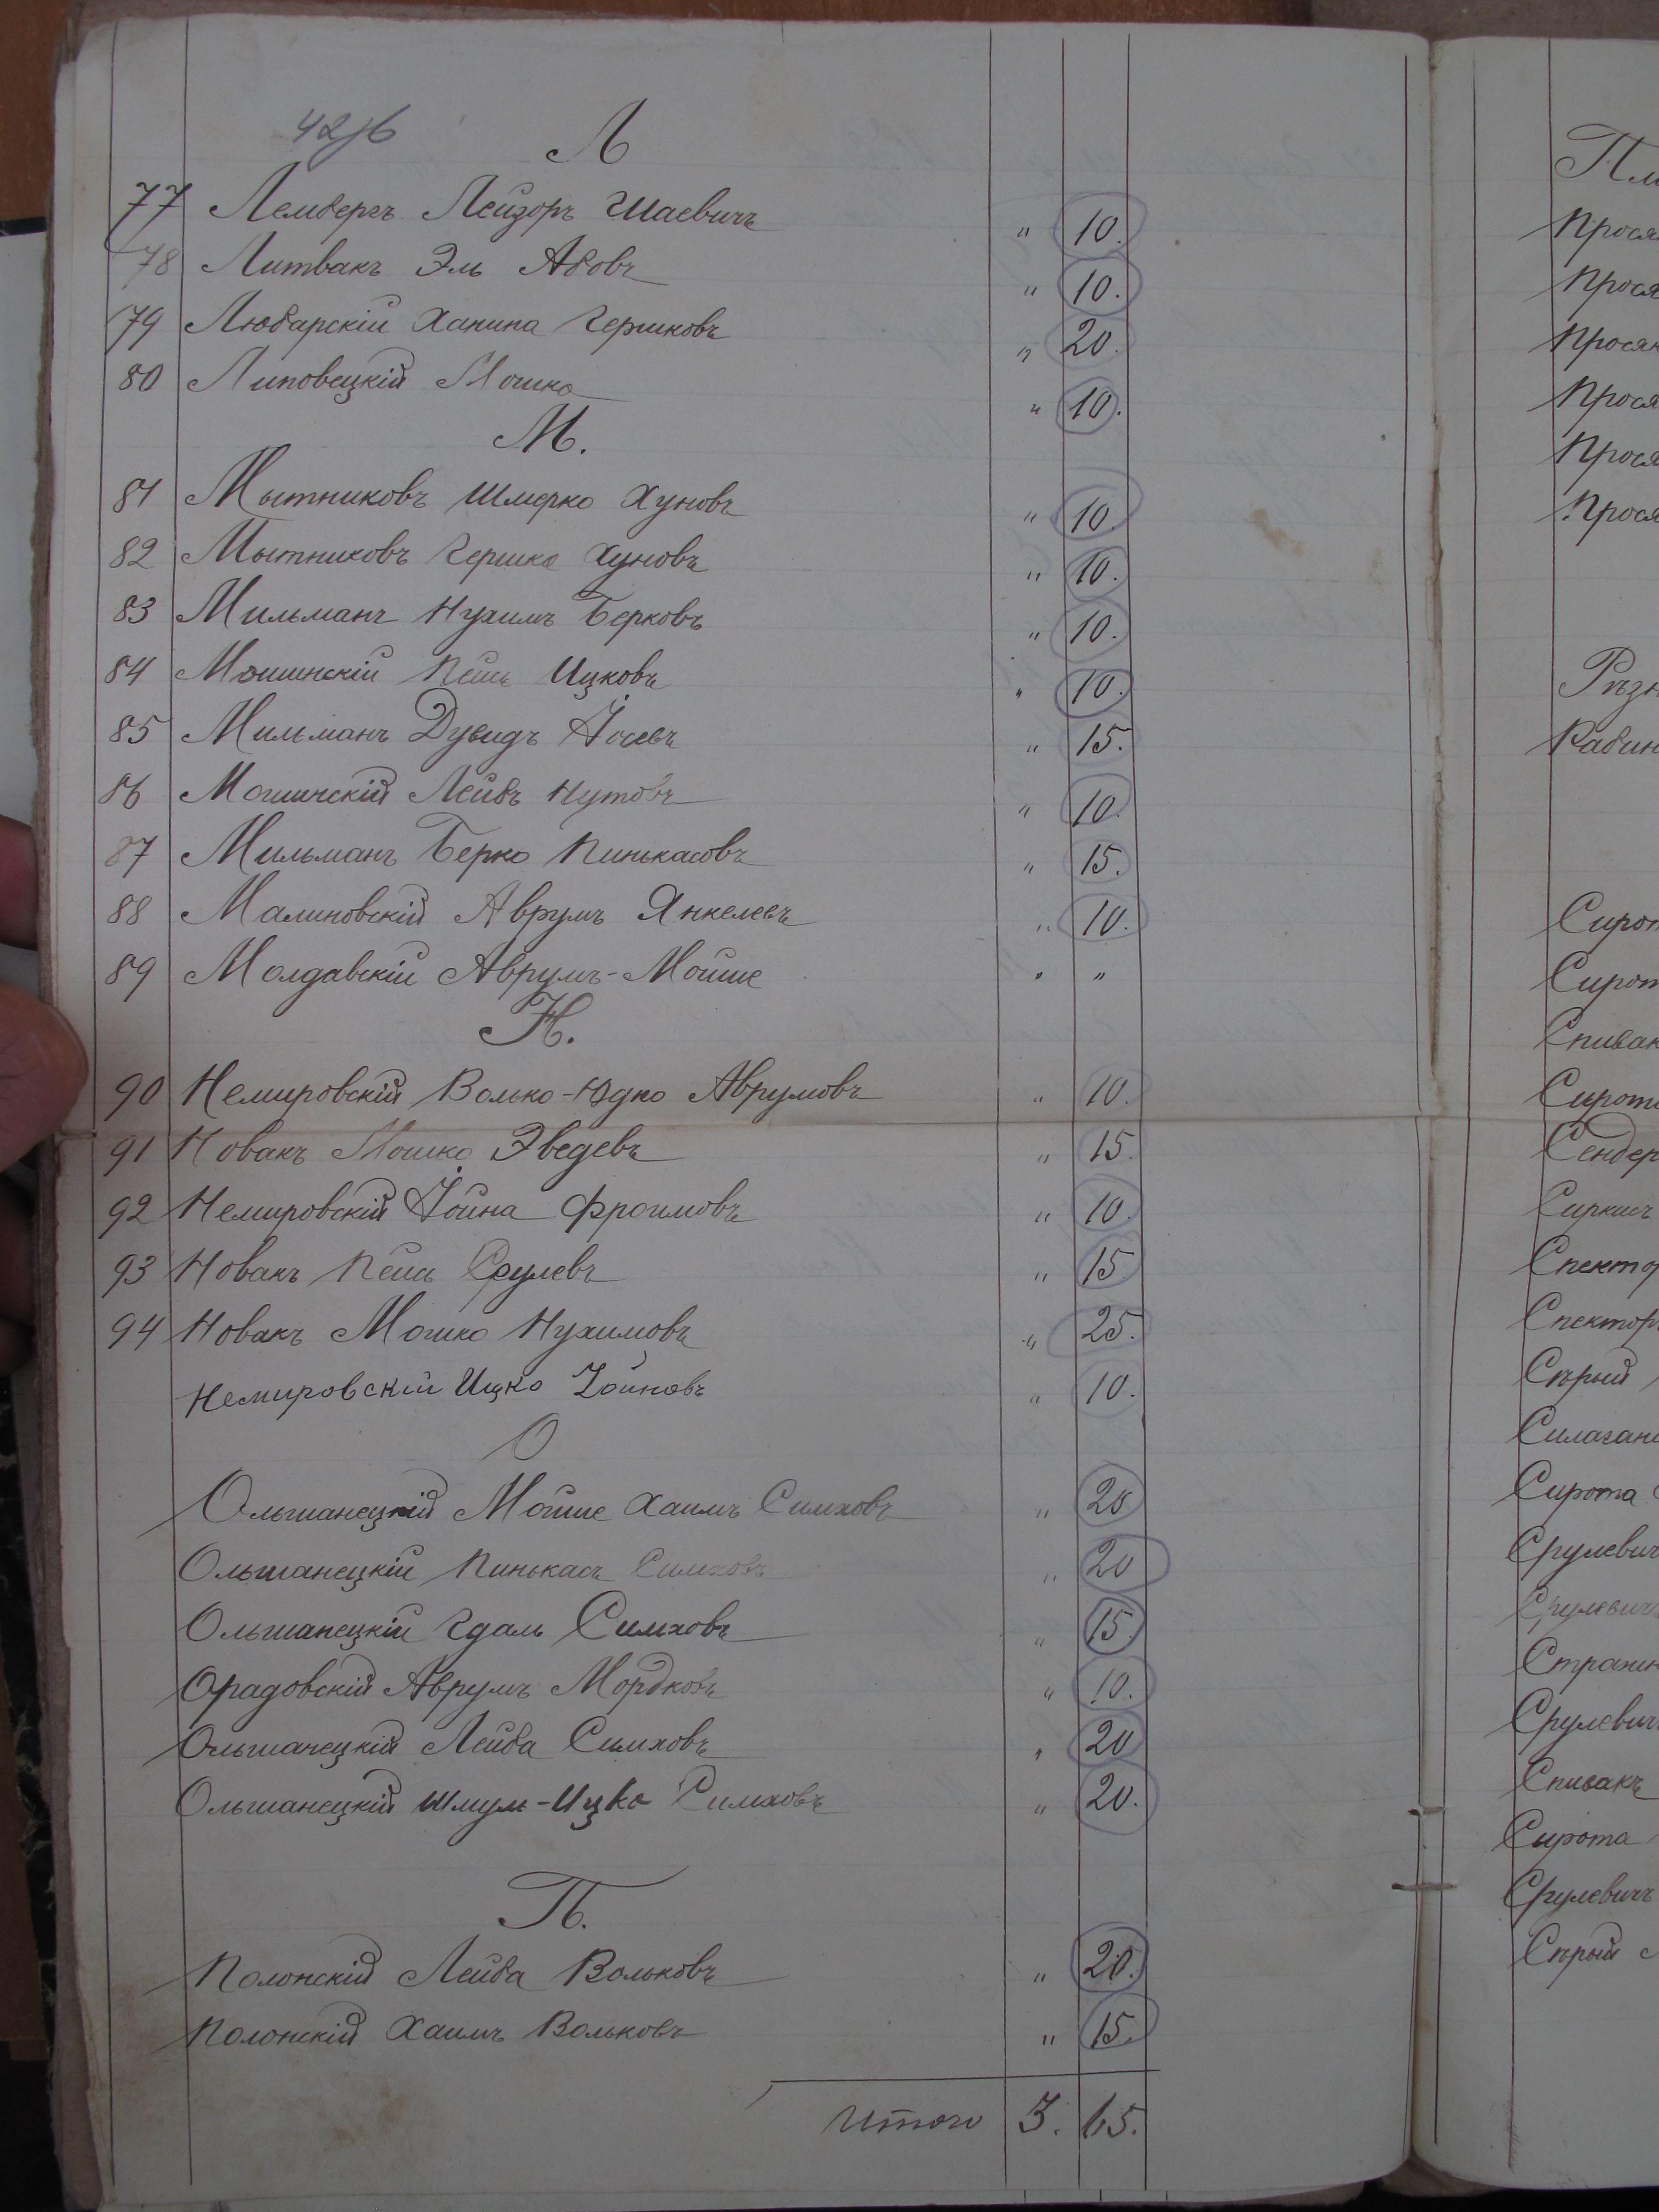 42
Л
77 Лембергъ Лейзоръ Шаевичъ " 10.
78 Литвакъ Эль Абовъ " 10.
79 Любарскій Ханина Гершковъ " 20.
80 Липовецкій Мошко " 10.
М.
81 Мытниковъ Шмерко Хуновъ " 10.
82 Мытниковъ Гершко Хуновъ " 10.
83 Мильманъ Нухимъ Берковъ " 10.
84 Мошинскій Пейсь Ицковъ " 10.
85 Мильманъ Дувидъ Іосевъ " 15.
86 Мошинскій Лейбъ Нутовъ " 10.
87 Мильманъ Берко Пинькасовъ " 15.
88 Малиновскій Аврумъ Янкелевъ " 10.
89 Молдавскій Аврумъ-Мойше " "
Н.
90 Немировскій Волько-Юдко Аврумовъ " 10.
91 Новакъ Мошко Эведевъ " 15.
92 Немировскій Іойна Фроимовъ " 10.
93 Новакъ Пейсь Срулевъ " 15
94 Новакъ Мошко Нухимовъ " 25.
Немировскій Ицко Іойновъ " 10.
О
Ольшанецкій Мойше Хаимъ Симховъ " 20
Ольшанецкій Пинькасъ Симховъ " 20
Ольшанецкій Гдаль Симховъ " 15.
Орадовскій Аврумъ Мордковъ " 10.
Ольшанецкій Лейба Симховъ " 20
Ольшанецкій Шмуль-Ицко Симховъ " 20.
П.
Полонскій Лейба Вольковъ " 20.
Полонскій Хаимъ Вольковъ " 15.
Итого 3. 65.
Прося
Прося
Просян
Прося
Прося
Прося
Рѣзн
Рабин
Сирот
Сирот
Спивак
Сирот
Сендер
Сиркисъ
Спектор
Спектор
Сѣрый
Сирота
Срулевич
Срулевичъ
Срулевич
Спивакъ
Сирота
Срулевичъ
Сѣрый